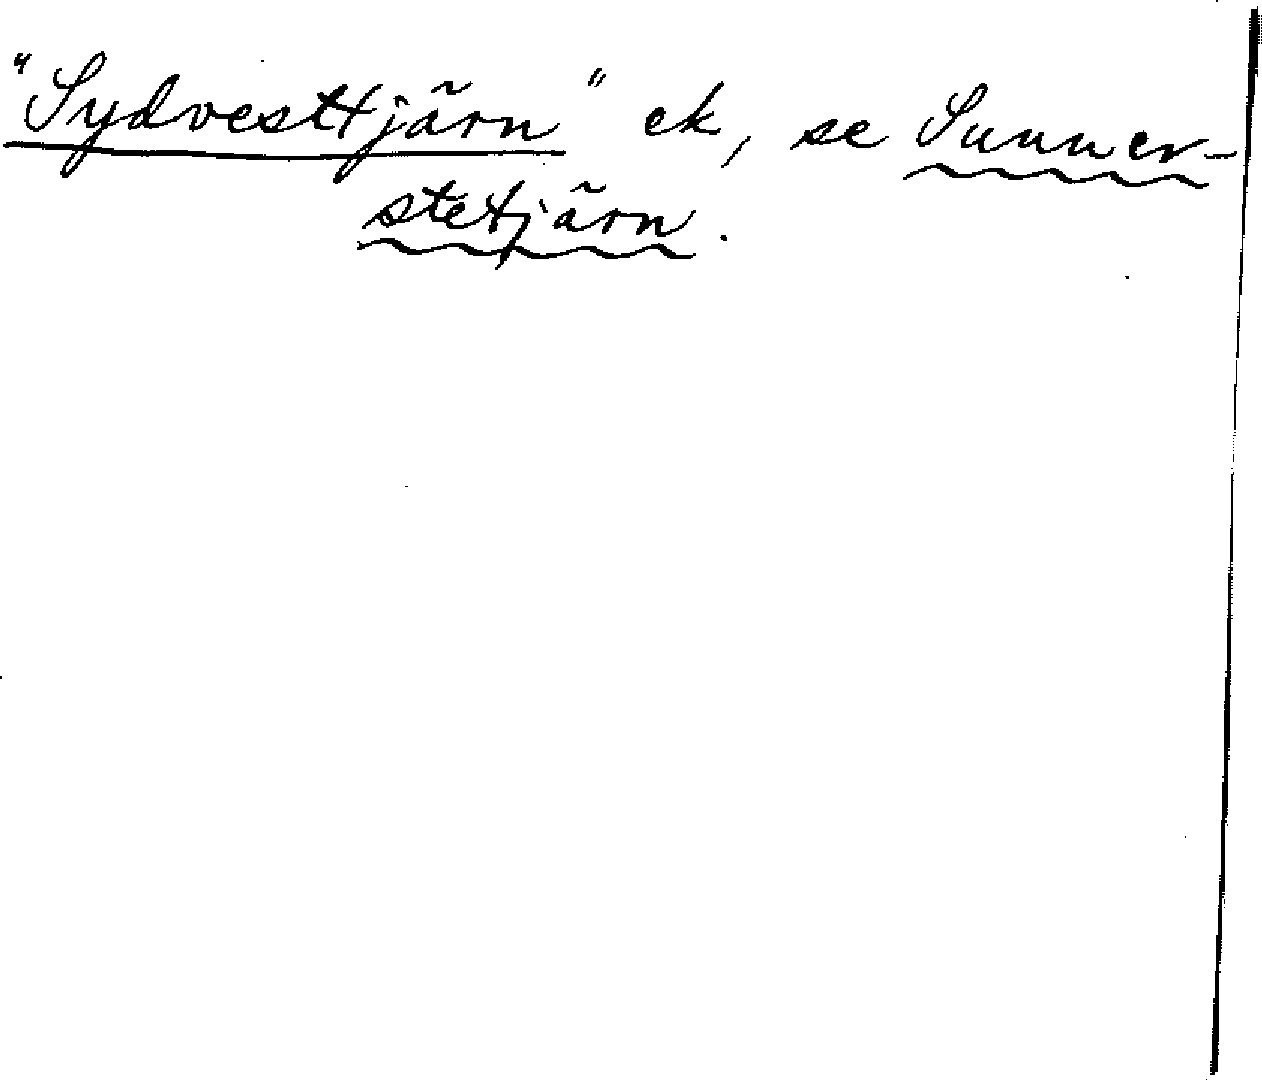 "Sydvesttjärn" ek, se Sunner-
stetjärn.